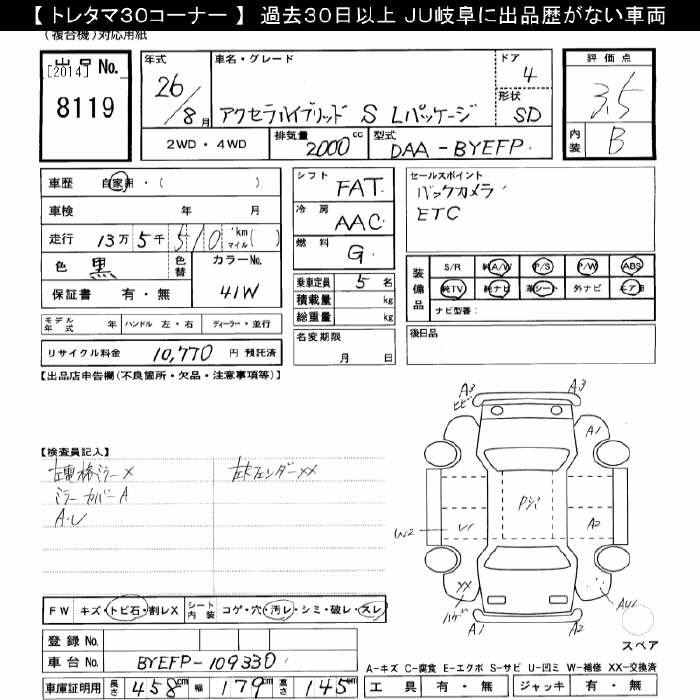 【トレタマ30コーナー】 過去30日以上 JU岐阜に出品歴がない車両
(複合機)対応用紙
出品No.
[2014]
8119
年式
26/8月
車名・グレード
アクセラハイブリッド S Lパッケージ
ドア
4
形状
SD
評価点
3.5
内装 B
2WD・4WD
排気量 2000cc
型式 DAA-BYEFP
車歴 自家用・( )
車検 年 月
走行 13万5千510 km マイル( )
色 黒
色替
カラーNo. 41W
保証書 有・無
シフト FAT
冷房 AAC
燃料 G
乗車定員 5名
積載量 kg
総重量 kg
名変期限 月 日
セールスポイント
バックカメラ
ETC
装備品
S/R 純A/W P/S P/W ABS
純TV 純ナビ 革シート 外ナビ エアB
ナビ型番:
後日品
モデル年式 年 ハンドル 左・右 ディーラー・並行
リサイクル料金 10,770 円 預託済
【出品店申告欄(不良箇所・欠品・注意事項等)】
【検査員記入】
左電格ミラーX
ミラーカバーA
A.U
左Fフェンダーxx
A3
ビビ
A3
A1
W2
U1
Pシミ
A2
XX
ハゲ
A1
A2
AU1
スペア
FW キズ・トビ石・割レX
シート内装 コゲ・穴・汚レ・シミ・破レ・スレ
登録No.
車台No. BYEFP-109330
A-キズ C-腐食 E-エクボ S-サビ U-凹ミ W-補修 XX-交換済
車庫証明用 長さ 458cm 幅 179cm 高さ 145cm
工具 有・無 ジャッキ 有・無